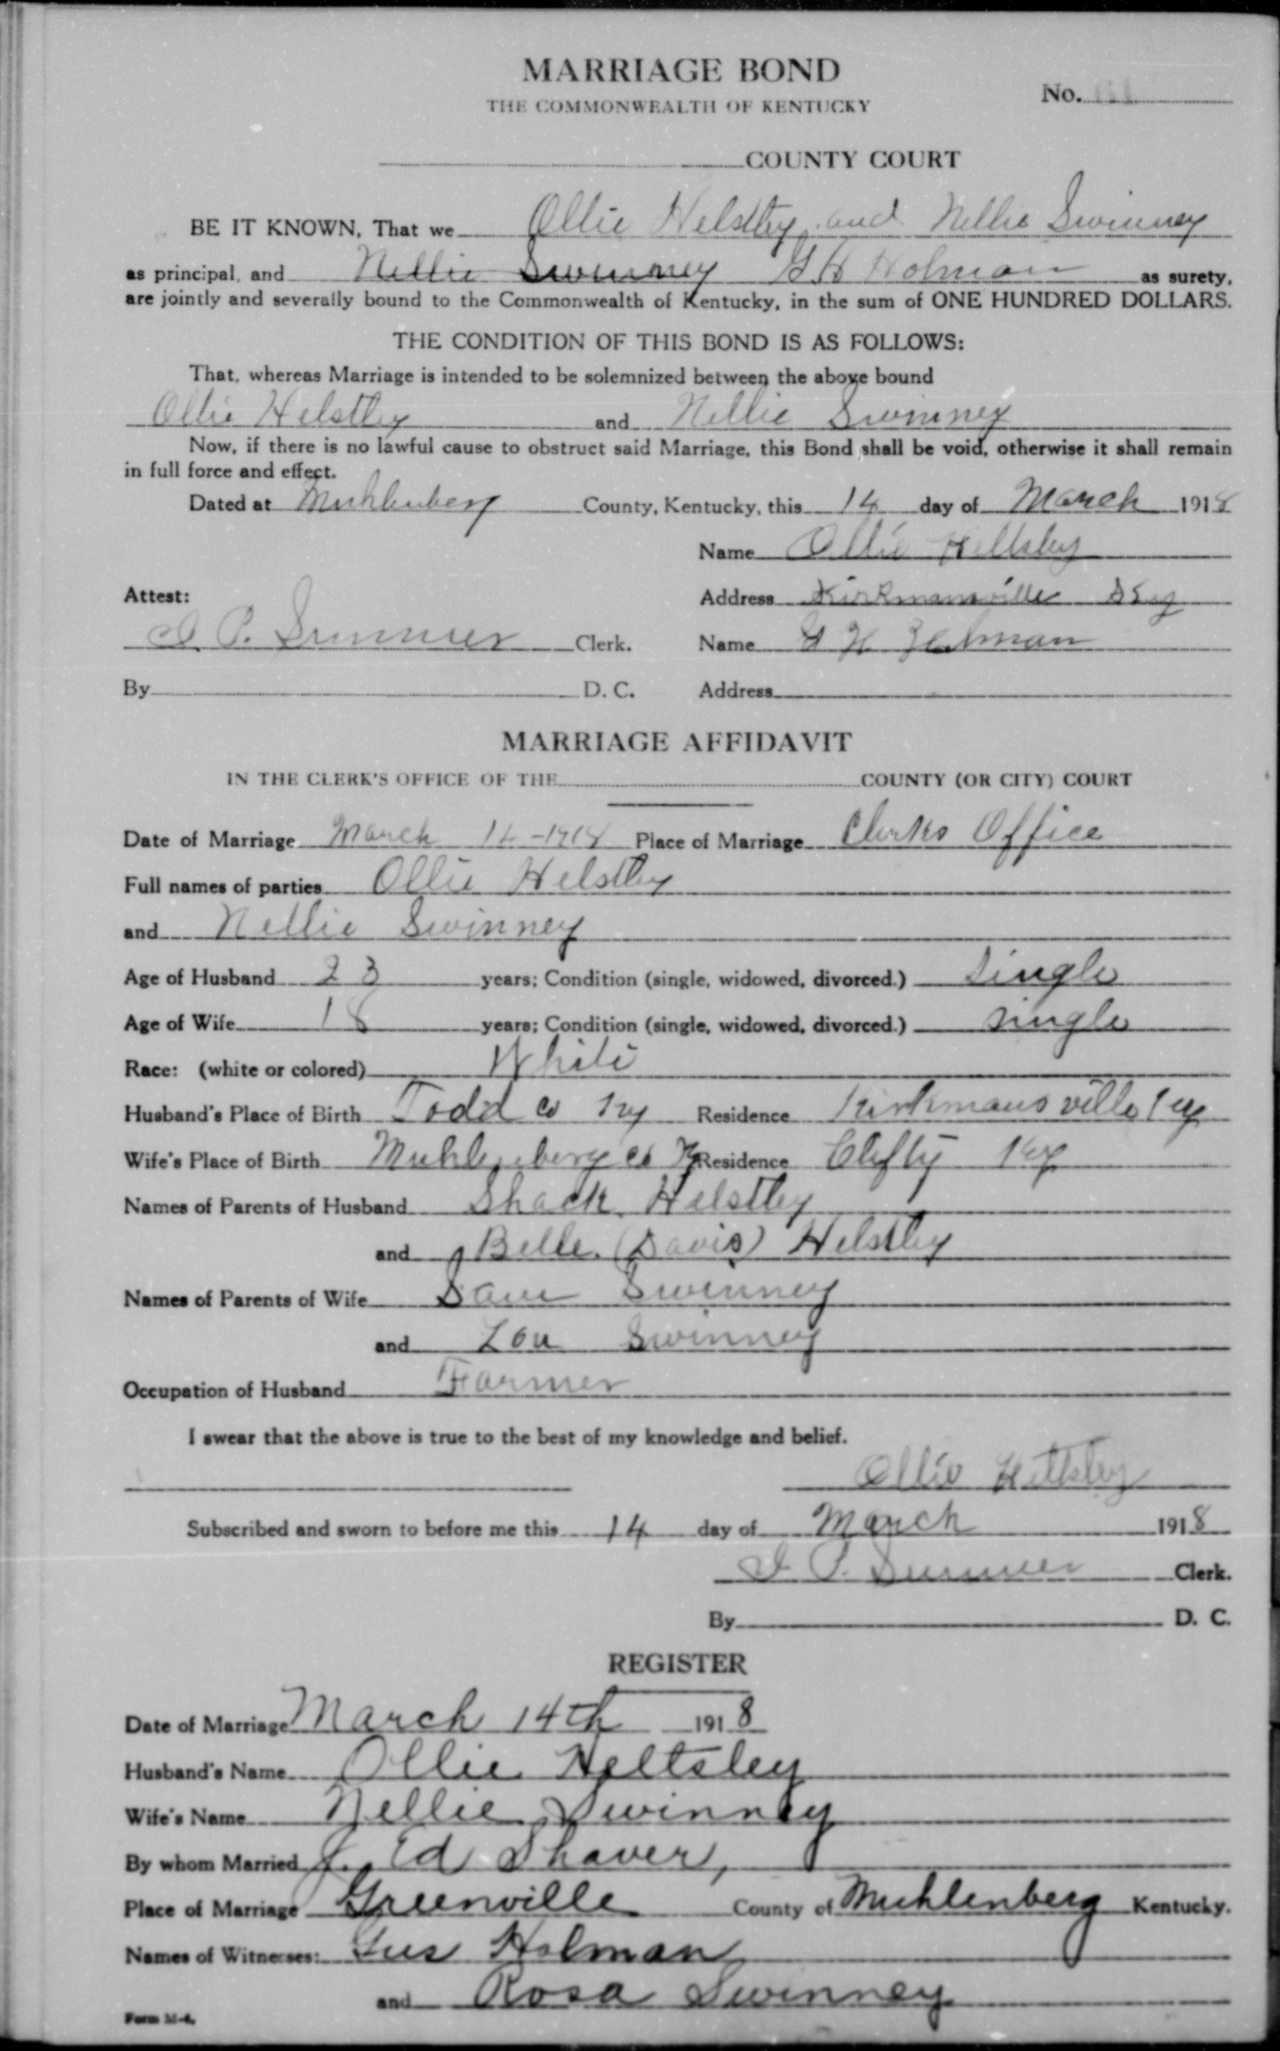 MARRIAGE BOND
THE COMMONWEALTH OF KENTUCKY
No. 61
COUNTY COURT
BE IT KNOWN, That we Ollie Helstley and Nellie Swinney
as principal, and Nellie Swinney G H Holman as surety,
are jointly and severally bound to the Commonwealth of Kentucky, in the sum of ONE HUNDRED DOLLARS.
THE CONDITION OF THIS BOND IS AS FOLLOWS:
That, whereas Marriage is intended to be solemnized between the above bound
Ollie Helstley and Nellie Swinney
Now, if there is no lawful cause to obstruct said Marriage, this Bond shall be void, otherwise it shall remain
in full force and effect.
Dated at Muhlenberg County, Kentucky, this 14 day of March 1918
Name Ollie Heltsley
Attest: Address Kirkmansville Ky
I. P. Summer Clerk. Name G H Holman
By D. C. Address
MARRIAGE AFFIDAVIT
IN THE CLERK'S OFFICE OF THE COUNTY (OR CITY) COURT
Date of Marriage March 14-1918 Place of Marriage Clerks Office
Full names of parties Ollie Helstley
and Nellie Swinney
Age of Husband 23 years; Condition (single, widowed, divorced.) Single
Age of Wife 18 years; Condition (single, widowed, divorced.) single
Race: (white or colored) White
Husband's Place of Birth Todd co Ky Residence Kirkmansville Ky
Wife's Place of Birth Muhlenberg co Ky Residence Clifty Ky
Names of Parents of Husband Shack Helstley
and Belle (Davis) Helstley
Names of Parents of Wife Sam Swinney
and Lou Swinney
Occupation of Husband Farmer
I swear that the above is true to the best of my knowledge and belief.
Ollie Heltsley
Subscribed and sworn to before me this 14 day of March 1918
I. P. Summer Clerk.
By D. C.
REGISTER
Date of Marriage March 14th 1918
Husband's Name Ollie Heltsley
Wife's Name Nellie Swinney
By whom Married J. Ed Shaver,
Place of Marriage Greenville County of Muhlenberg Kentucky.
Names of Witnesses: Gus Holman
and Rosa Swinney
Form M-4.